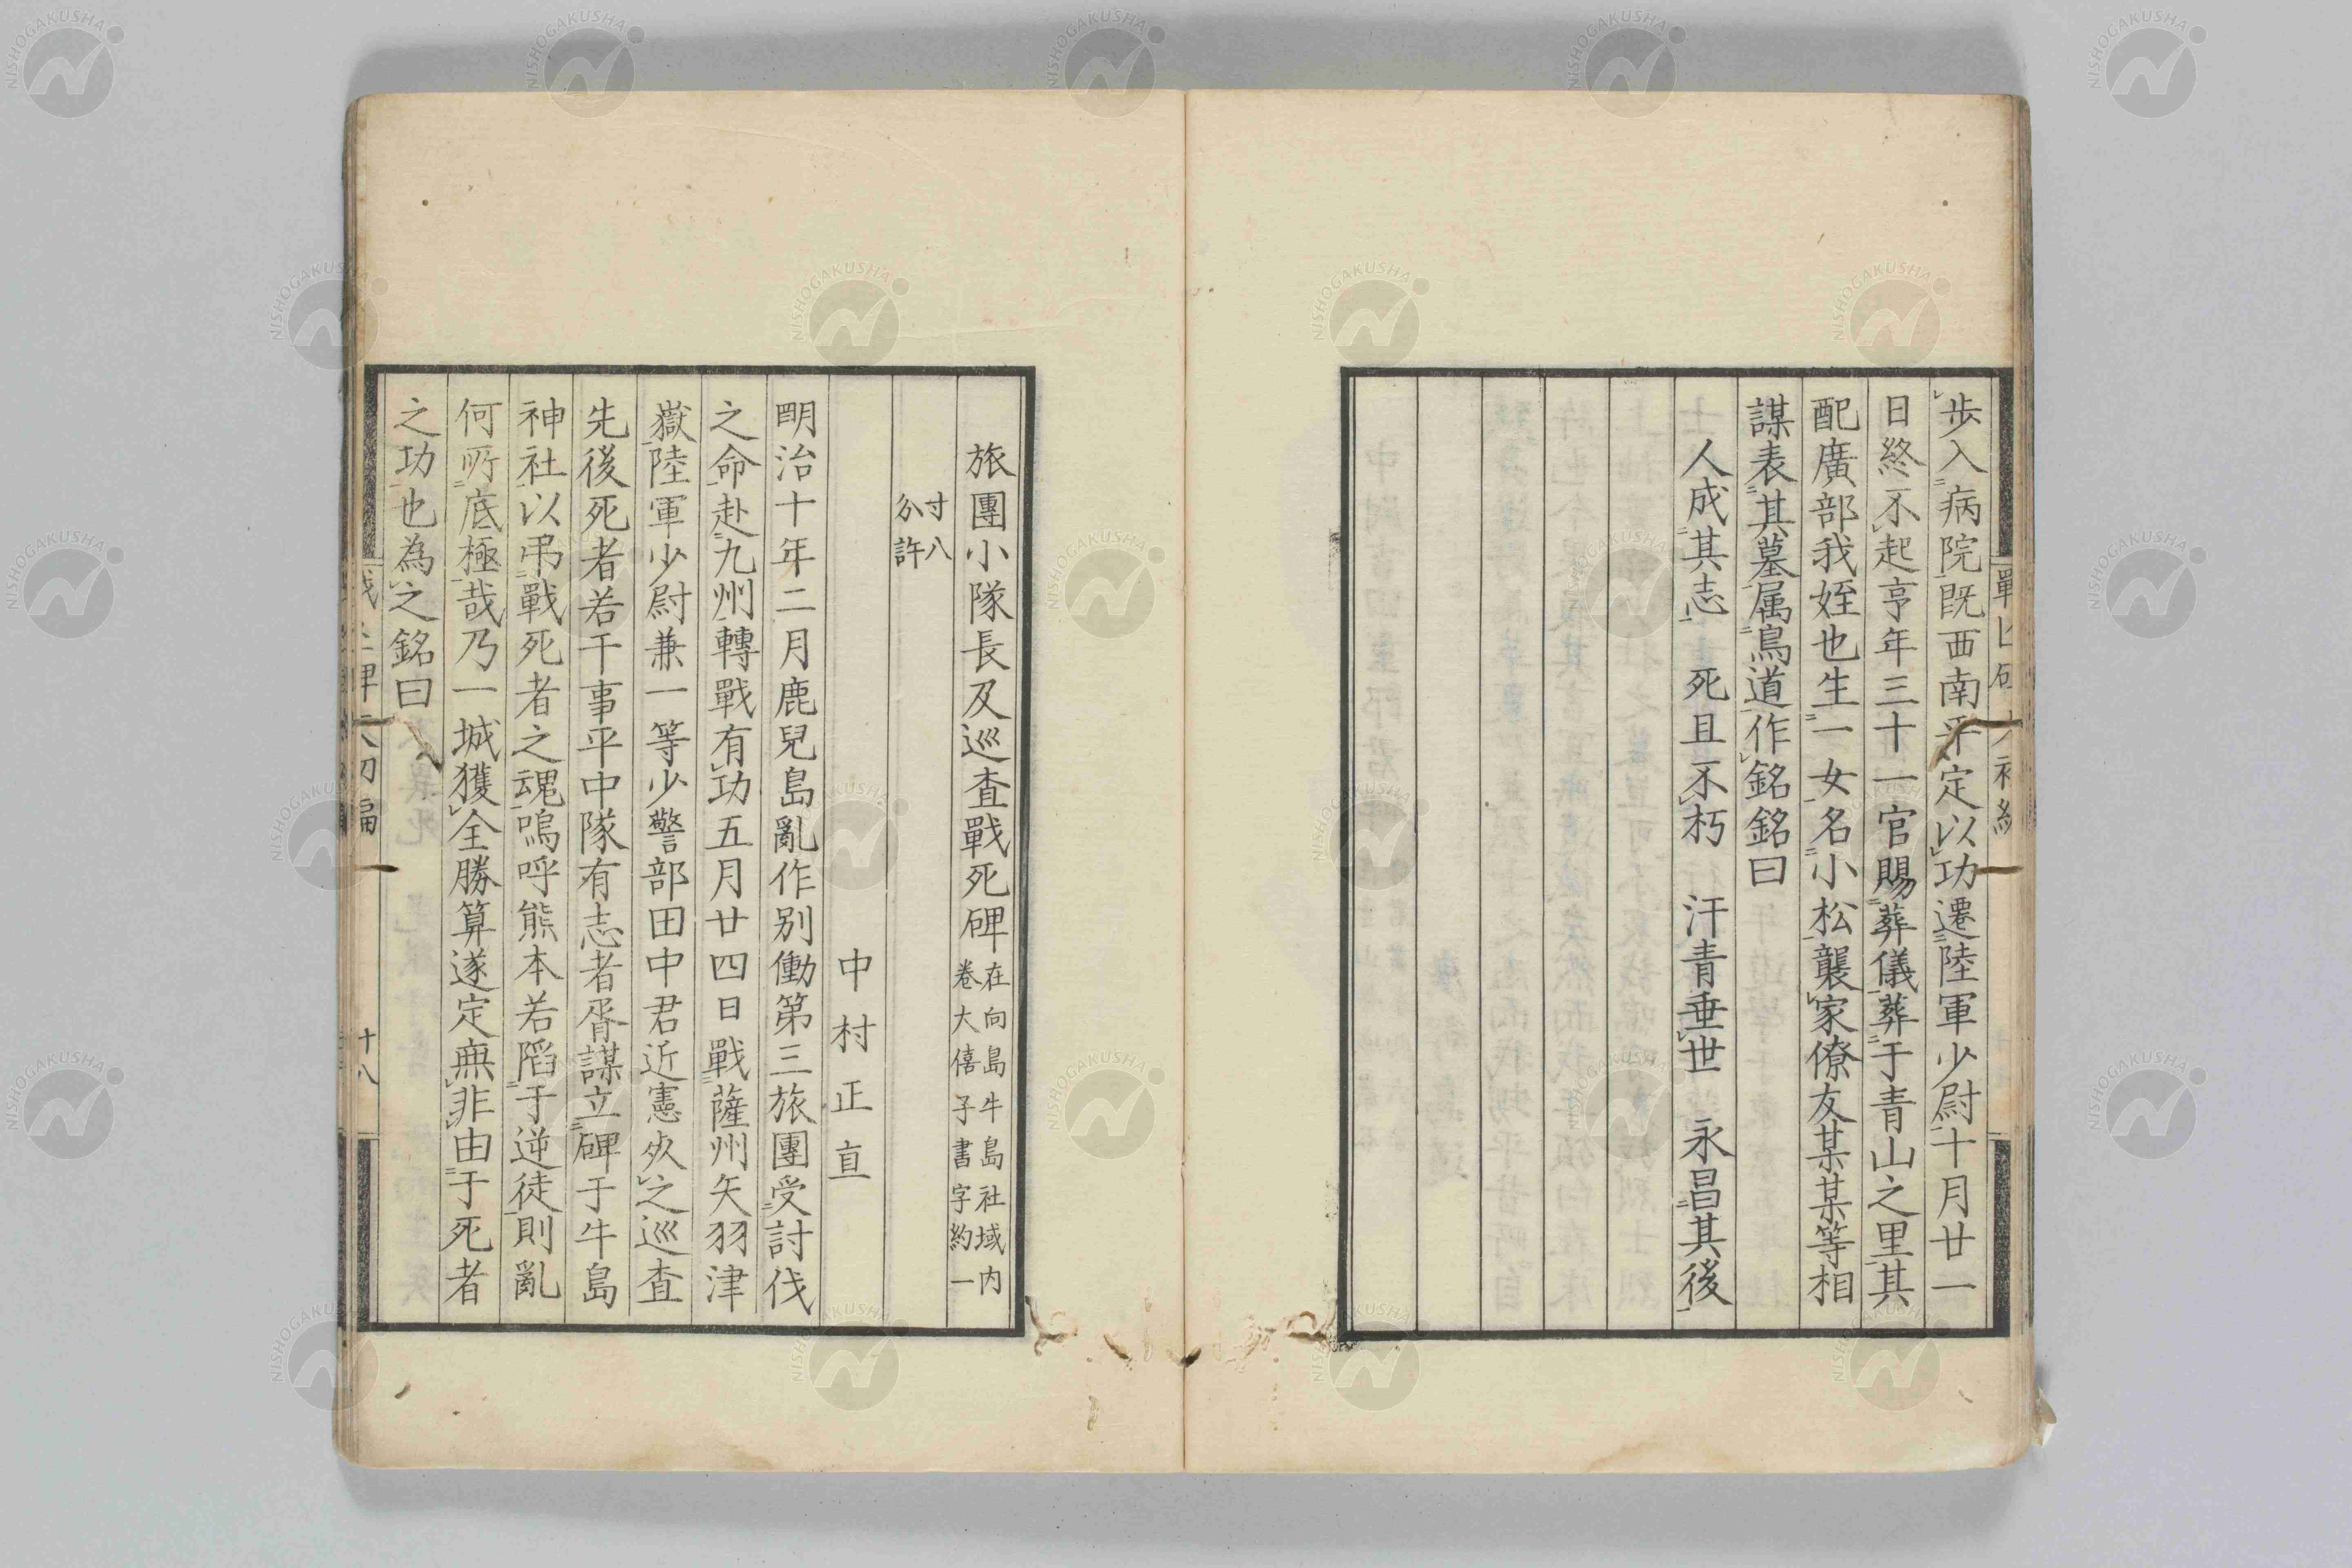 歩入病院既西南平定以功遷陸軍少尉十月廿一
日終不起亨年三十一官賜葬儀葬于青山之里其
配廣部我姪也生一女名小松襲家僚友某某等相
謀表其墓属鳥道作銘銘曰
人成其志 死且不朽 汗青垂世 永昌其後
旅團小隊長及巡査戰死碑
在向島牛島社域内
卷大僖子書字約一
寸八
分許
中村正直
明治十年二月鹿兒島亂作別働第三旅團受討伐
之命赴九州轉戰有功五月廿四日戰薩州矢羽津
嶽陸軍少尉兼一等少警部田中君近憲死之巡査
先後死者若干事平中隊有志者胥謀立碑于牛島
神社以弔戰死者之魂嗚呼熊本若陷于逆徒則亂
何所底極哉乃一城獲全勝算遂定無非由于死者
之功也為之銘曰
十八
NISHOGAKUSHA